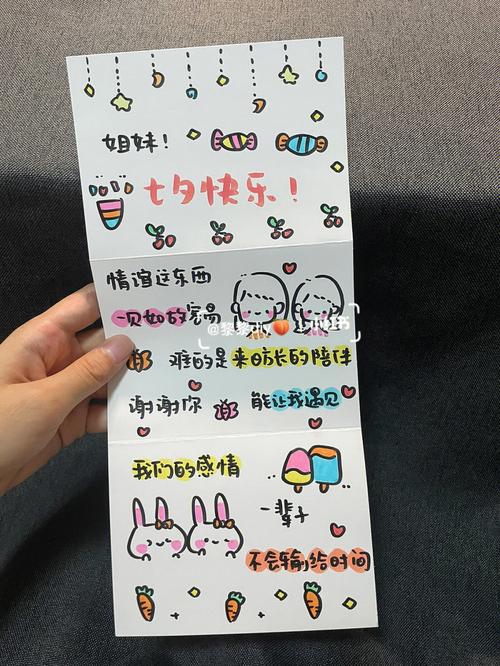 姐妹!
七夕快乐!
情谊这东西
一见如故容易
难的是来日方长的陪伴
谢谢你 能让我遇见
我们的感情
一辈子
不会输给时间